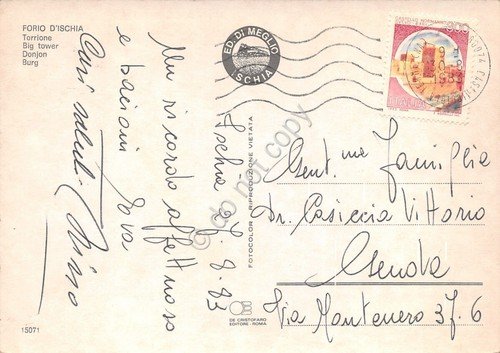 FORIO D'ISCHIA
Torrione
Big tower
Donjon
Burg
ED. DI MEGLIO
ISCHIA
Ischia 27.8.83
Un ricordo affettuoso
e bacioni
Eva
Cari saluti
FOTOCOLOR - RIPRODUZIONE VIETATA
do not copy
Gent.me Famiglia
Dr. Casiccia Vittorio
Genova
Via Montenero 37.6
DE CRISTOFARO
EDITORE - ROMA
15071